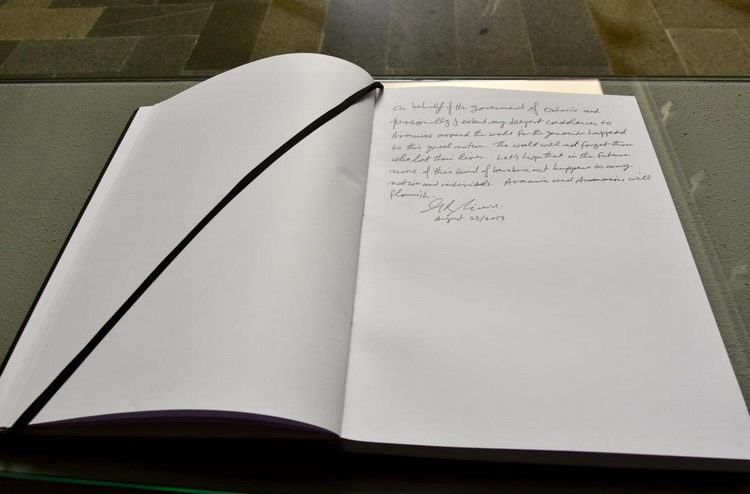 On behalf of the government of Ontario and
personally I extend my deepest condolences to
Armenians around the world for the genocide happened
to this great nation. The world will not forget those
who lost their lives. Let's hope that in the future
none of this kind of barbaric act happens to any
nation and individuals. Armenia and Armenians will
flourish.
August 23/2017